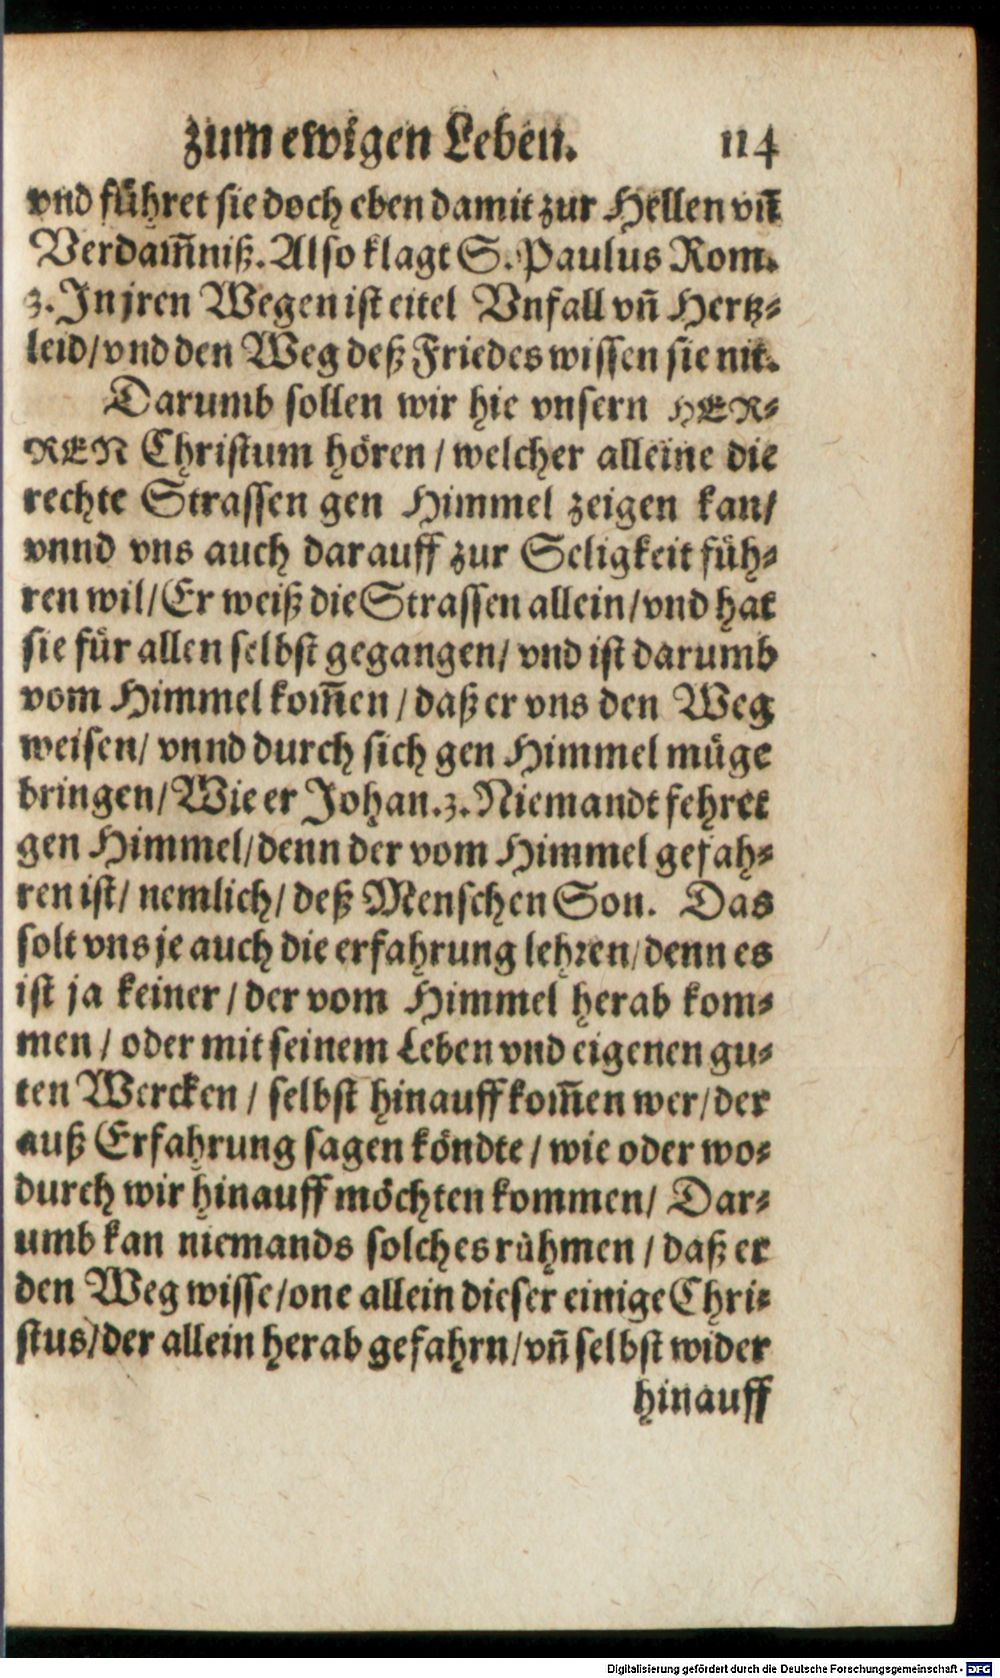 zum ewigen Leben. 114
vnd führet sie doch eben damit zur Hellen vñ
Verdam̃niß. Also klagt S. Paulus Rom.
3. In jren Wegen ist eitel Vnfall vñ Hertz-
leid/ vnd den Weg deß Friedes wissen sie nit.
Darumb sollen wir hie vnsern HER-
REN Christum hören / welcher alleine die
rechte Strassen gen Himmel zeigen kan/
vnnd vns auch darauff zur Seligkeit füh-
ren wil/ Er weiß die Strassen allein/ vnd hat
sie für allen selbst gegangen/ vnd ist darumb
vom Himmel kom̃en / daß er vns den Weg
weisen/ vnnd durch sich gen Himmel müge
bringen/ Wie er Johan. 3. Niemandt fehret
gen Himmel/ denn der vom Himmel gefah-
ren ist/ nemlich/ deß Menschen Son. Das
solt vns je auch die erfahrung lehren/ denn es
ist ja keiner / der vom Himmel herab kom-
men / oder mit seinem Leben vnd eigenen gu-
ten Wercken / selbst hinauff kom̃en wer/ der
auß Erfahrung sagen köndte / wie oder wo-
durch wir hinauff möchten kommen/ Dar-
umb kan niemands solches rühmen / daß er
den Weg wisse/ one allein dieser einige Chri-
stus/ der allein herab gefahrn/ vñ selbst wider
hinauff
Digitalisierung gefördert durch die Deutsche Forschungsgemeinschaft - DFG